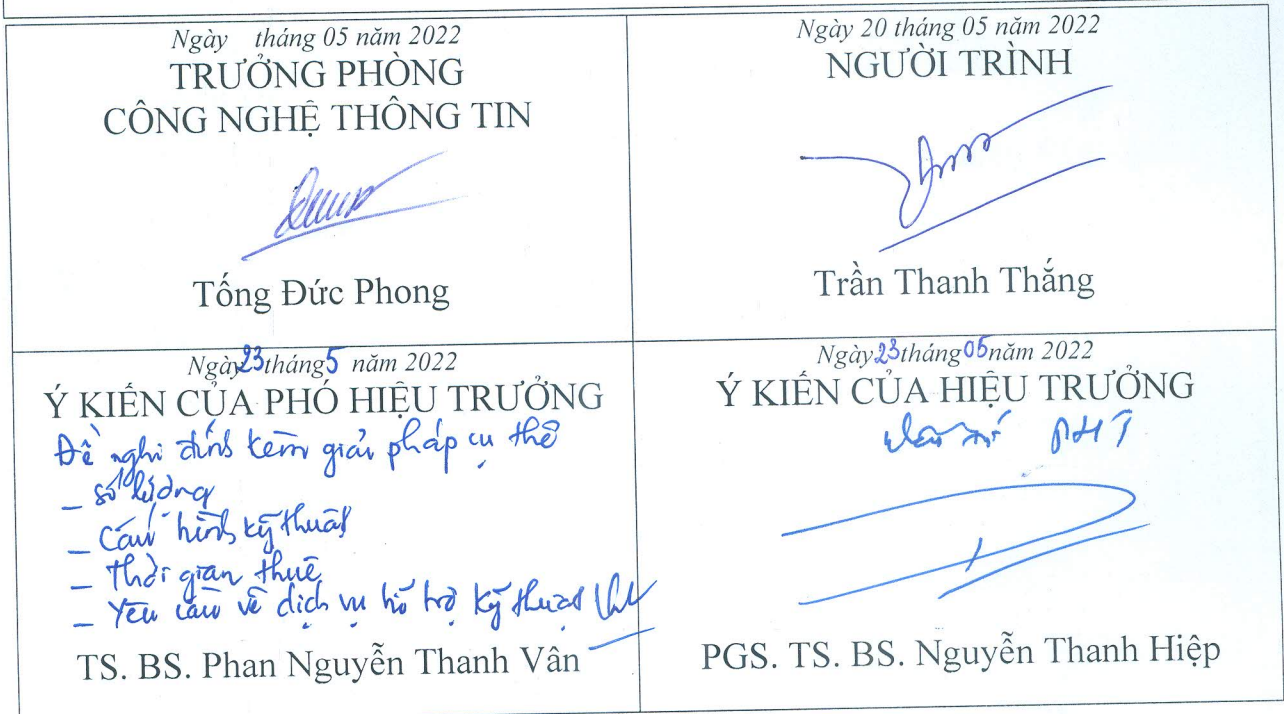 Ngày tháng 05 năm 2022
TRƯỞNG PHÒNG
CÔNG NGHỆ THÔNG TIN
Tống Đức Phong
Ngày 20 tháng 05 năm 2022
NGƯỜI TRÌNH
Trần Thanh Thắng
Ngày 23 tháng 5 năm 2022
Ý KIẾN CỦA PHÓ HIỆU TRƯỞNG
Đề nghị đính kèm giải pháp cụ thể
- số lượng
- Cấu hình kỹ thuật
- Thời gian thuê
- Yêu cầu về dịch vụ hỗ trợ kỹ thuật
TS. BS. Phan Nguyễn Thanh Vân
Ngày 23 tháng 05 năm 2022
Ý KIẾN CỦA HIỆU TRƯỞNG
PHT
PGS. TS. BS. Nguyễn Thanh Hiệp